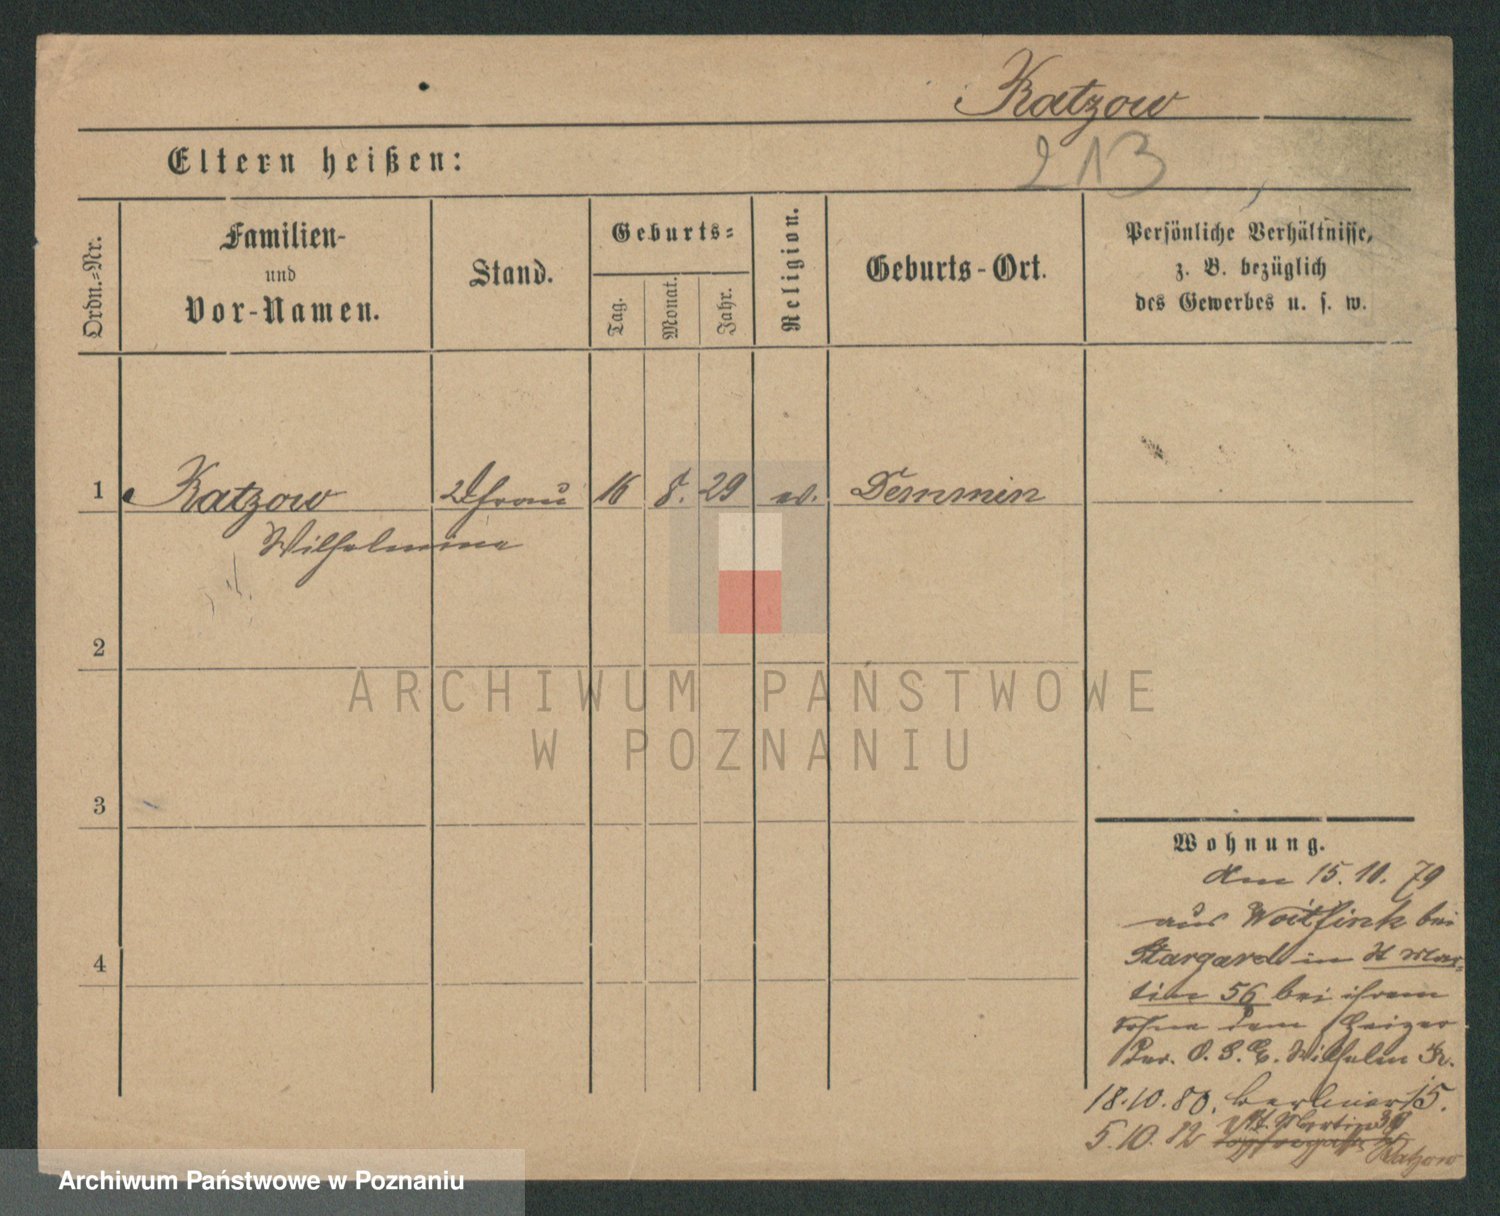 Katzow
213
Eltern heißen:
Ordn.-Nr.
Familien-
und
Vor-Namen.
Stand.
Geburts-
Tag.
Monat.
Jahr.
Religion.
Geburts-Ort.
Persönliche Verhältnisse,
z. B. bezüglich
des Gewerbes u. s. w.
1 Katzow frau 16 8. 29 ev. Demmin
Wilhelmine
2
3
4
Wohnung.
den 15. 10. 79
aus bei
Stargard in St Mar-
tin 56 bei ihrem
Sohne dem Heizer
der O. S. E. Wilhelm
18.10.80. Berliner 15.
St. Martin 39
5.10.82 Katzow
ARCHIWUM PAŃSTWOWE
W POZNANIU
Archiwum Państwowe w Poznaniu